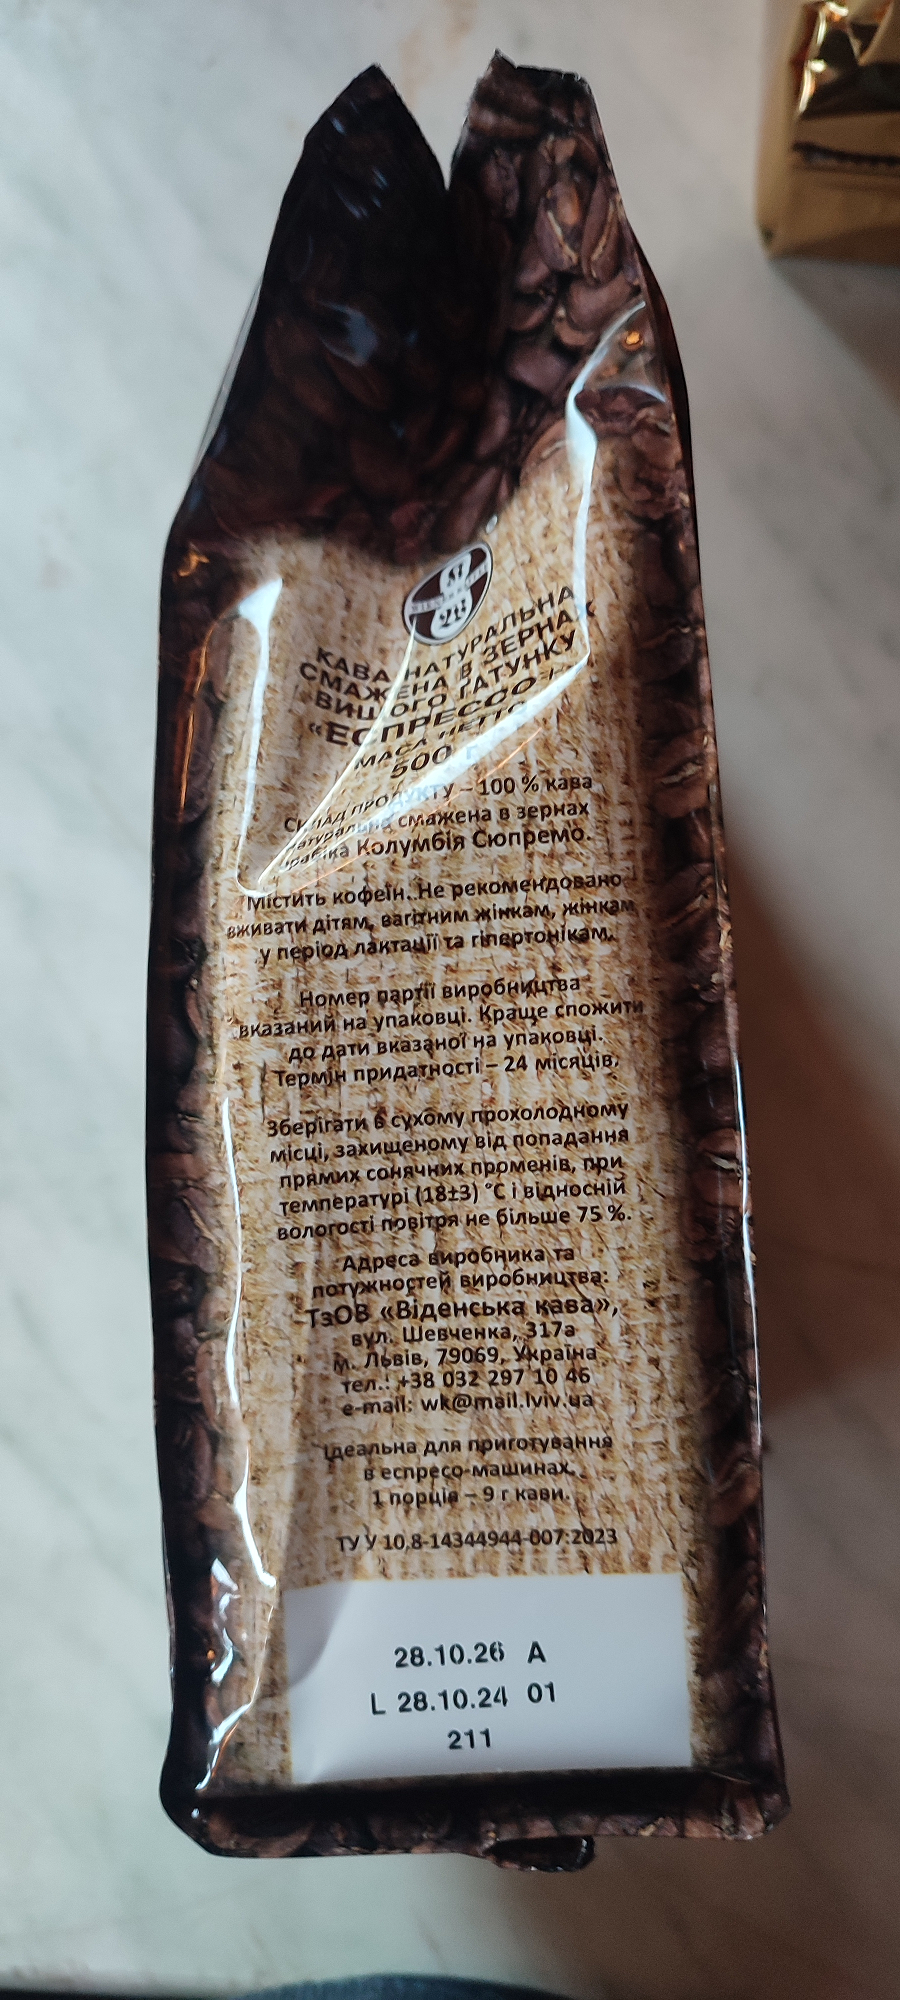 КАВА НАТУРАЛЬНА
СМАЖЕНА В ЗЕРНАХ
ВИЩОГО ҐАТУНКУ
«ЕСПРЕССО»
МАСА НЕТТО
500 г
СКЛАД ПРОДУКТУ – 100 % кава
натуральна смажена в зернах
арабіка Колумбія Сюпремо.
Містить кофеїн. Не рекомендовано
вживати дітям, вагітним жінкам, жінкам
у період лактації та гіпертонікам.
Номер партії виробництва
вказаний на упаковці. Краще спожити
до дати вказаної на упаковці.
Термін придатності – 24 місяців.
Зберігати в сухому прохолодному
місці, захищеному від попадання
прямих сонячних променів, при
температурі (18±3) °С і відносній
вологості повітря не більше 75 %.
Адреса виробника та
потужностей виробництва:
ТзОВ «Віденська кава»,
вул. Шевченка, 317а
м. Львів, 79069, Україна
тел.: +38 032 297 10 46
e-mail: wk@mail.lviv.ua
Ідеальна для приготування
в еспресо-машинах.
1 порція – 9 г кави.
ТУ У 10,8-14344944-007:2023
28.10.26 A
L 28.10.24 01
211